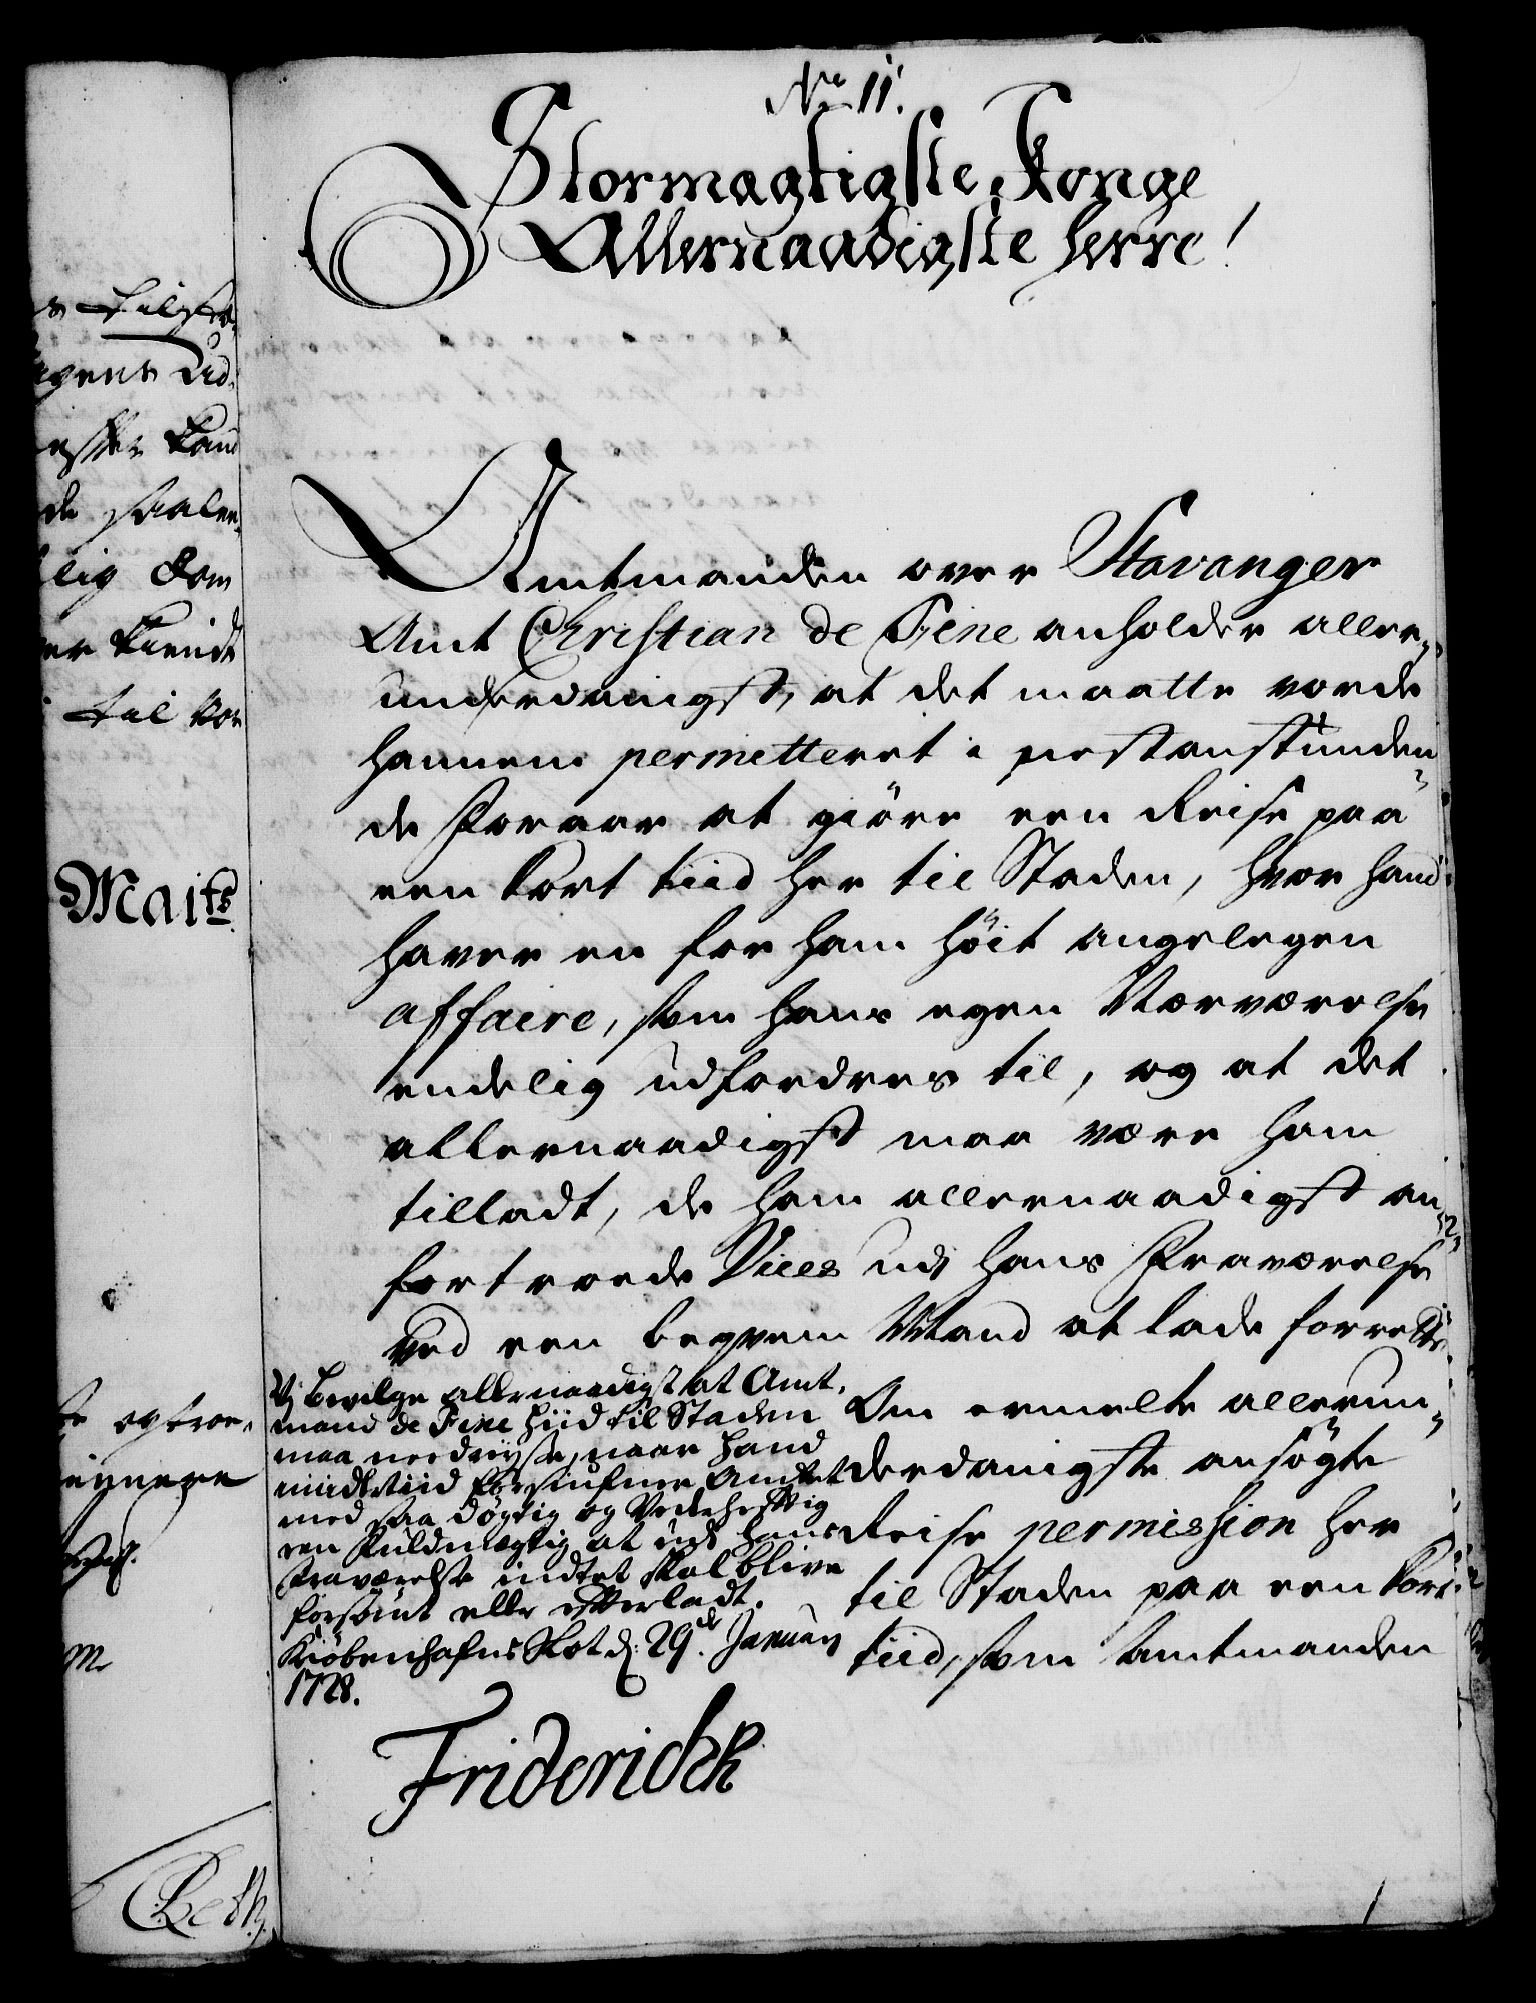 No 11.
Stormægtigste Konge
Allernaadigste Herre!
Amtmanden over Stavanger
Amt Christian de Fine anholder aller-
underdanigst, at det maatte vorde
hannem permetteret i næstanstunden-
de Foraar at giöre een Reise paa
een kort tiid her til Staden, hvor hand
haver en for ham höit angelegen
affaire, som hans egen Nærværelse
endelig udfordres til, og at det
allernaadigst maa være ham
tilladt, de ham allernaadigst an-
fortroede Vices udj hans Fraværelse
ved een beqvem Mand at lade forrette.
Om ermelte allerun-
derdanigste ansögte
Reise permission her
til Staden paa een kort
tiid, som Amtmanden
Vj bevilge allernaadigst at Amt-
mand de Fine hiid til Staden
maa needreyse, naar hand
midlertiid forsiufner Amtet
med saa dögtig og Vederheftig
een Fuldmegtig at udj hans
Fraværelse indtet skal blive
forsömt eller efterladt.
Kiöbenhafns Slot d: 29de Januarij
1728.
Friderich R
til
Maits